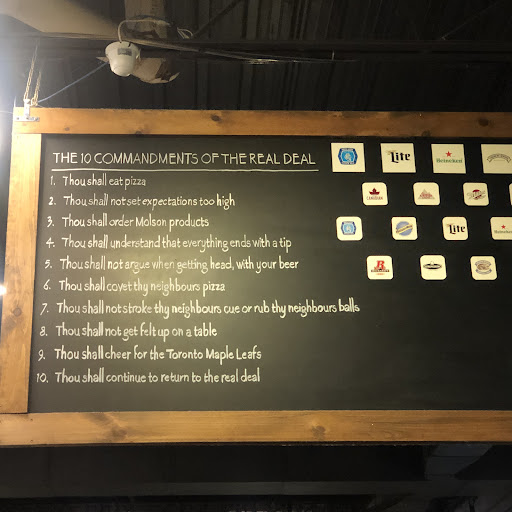 THE 10 COMMANDMENTS OF THE REAL DEAL
1. Thou shall eat pizza
2. Thou shall not set expectations too high
3. Thou shall order Molson products
4. Thou shall understand that everything ends with a tip
5. Thou shall not argue when getting head, with your beer
6. Thou shall covet thy neighbours pizza
7. Thou shall not stroke thy neighbours cue or rub thy neighbours balls
8. Thou shall not get felt up on a table
9. Thou shall cheer for the Toronto Maple Leafs
10. Thou shall continue to return to the real deal
Lite
Heineken
CANADIAN
Lite
Heineken